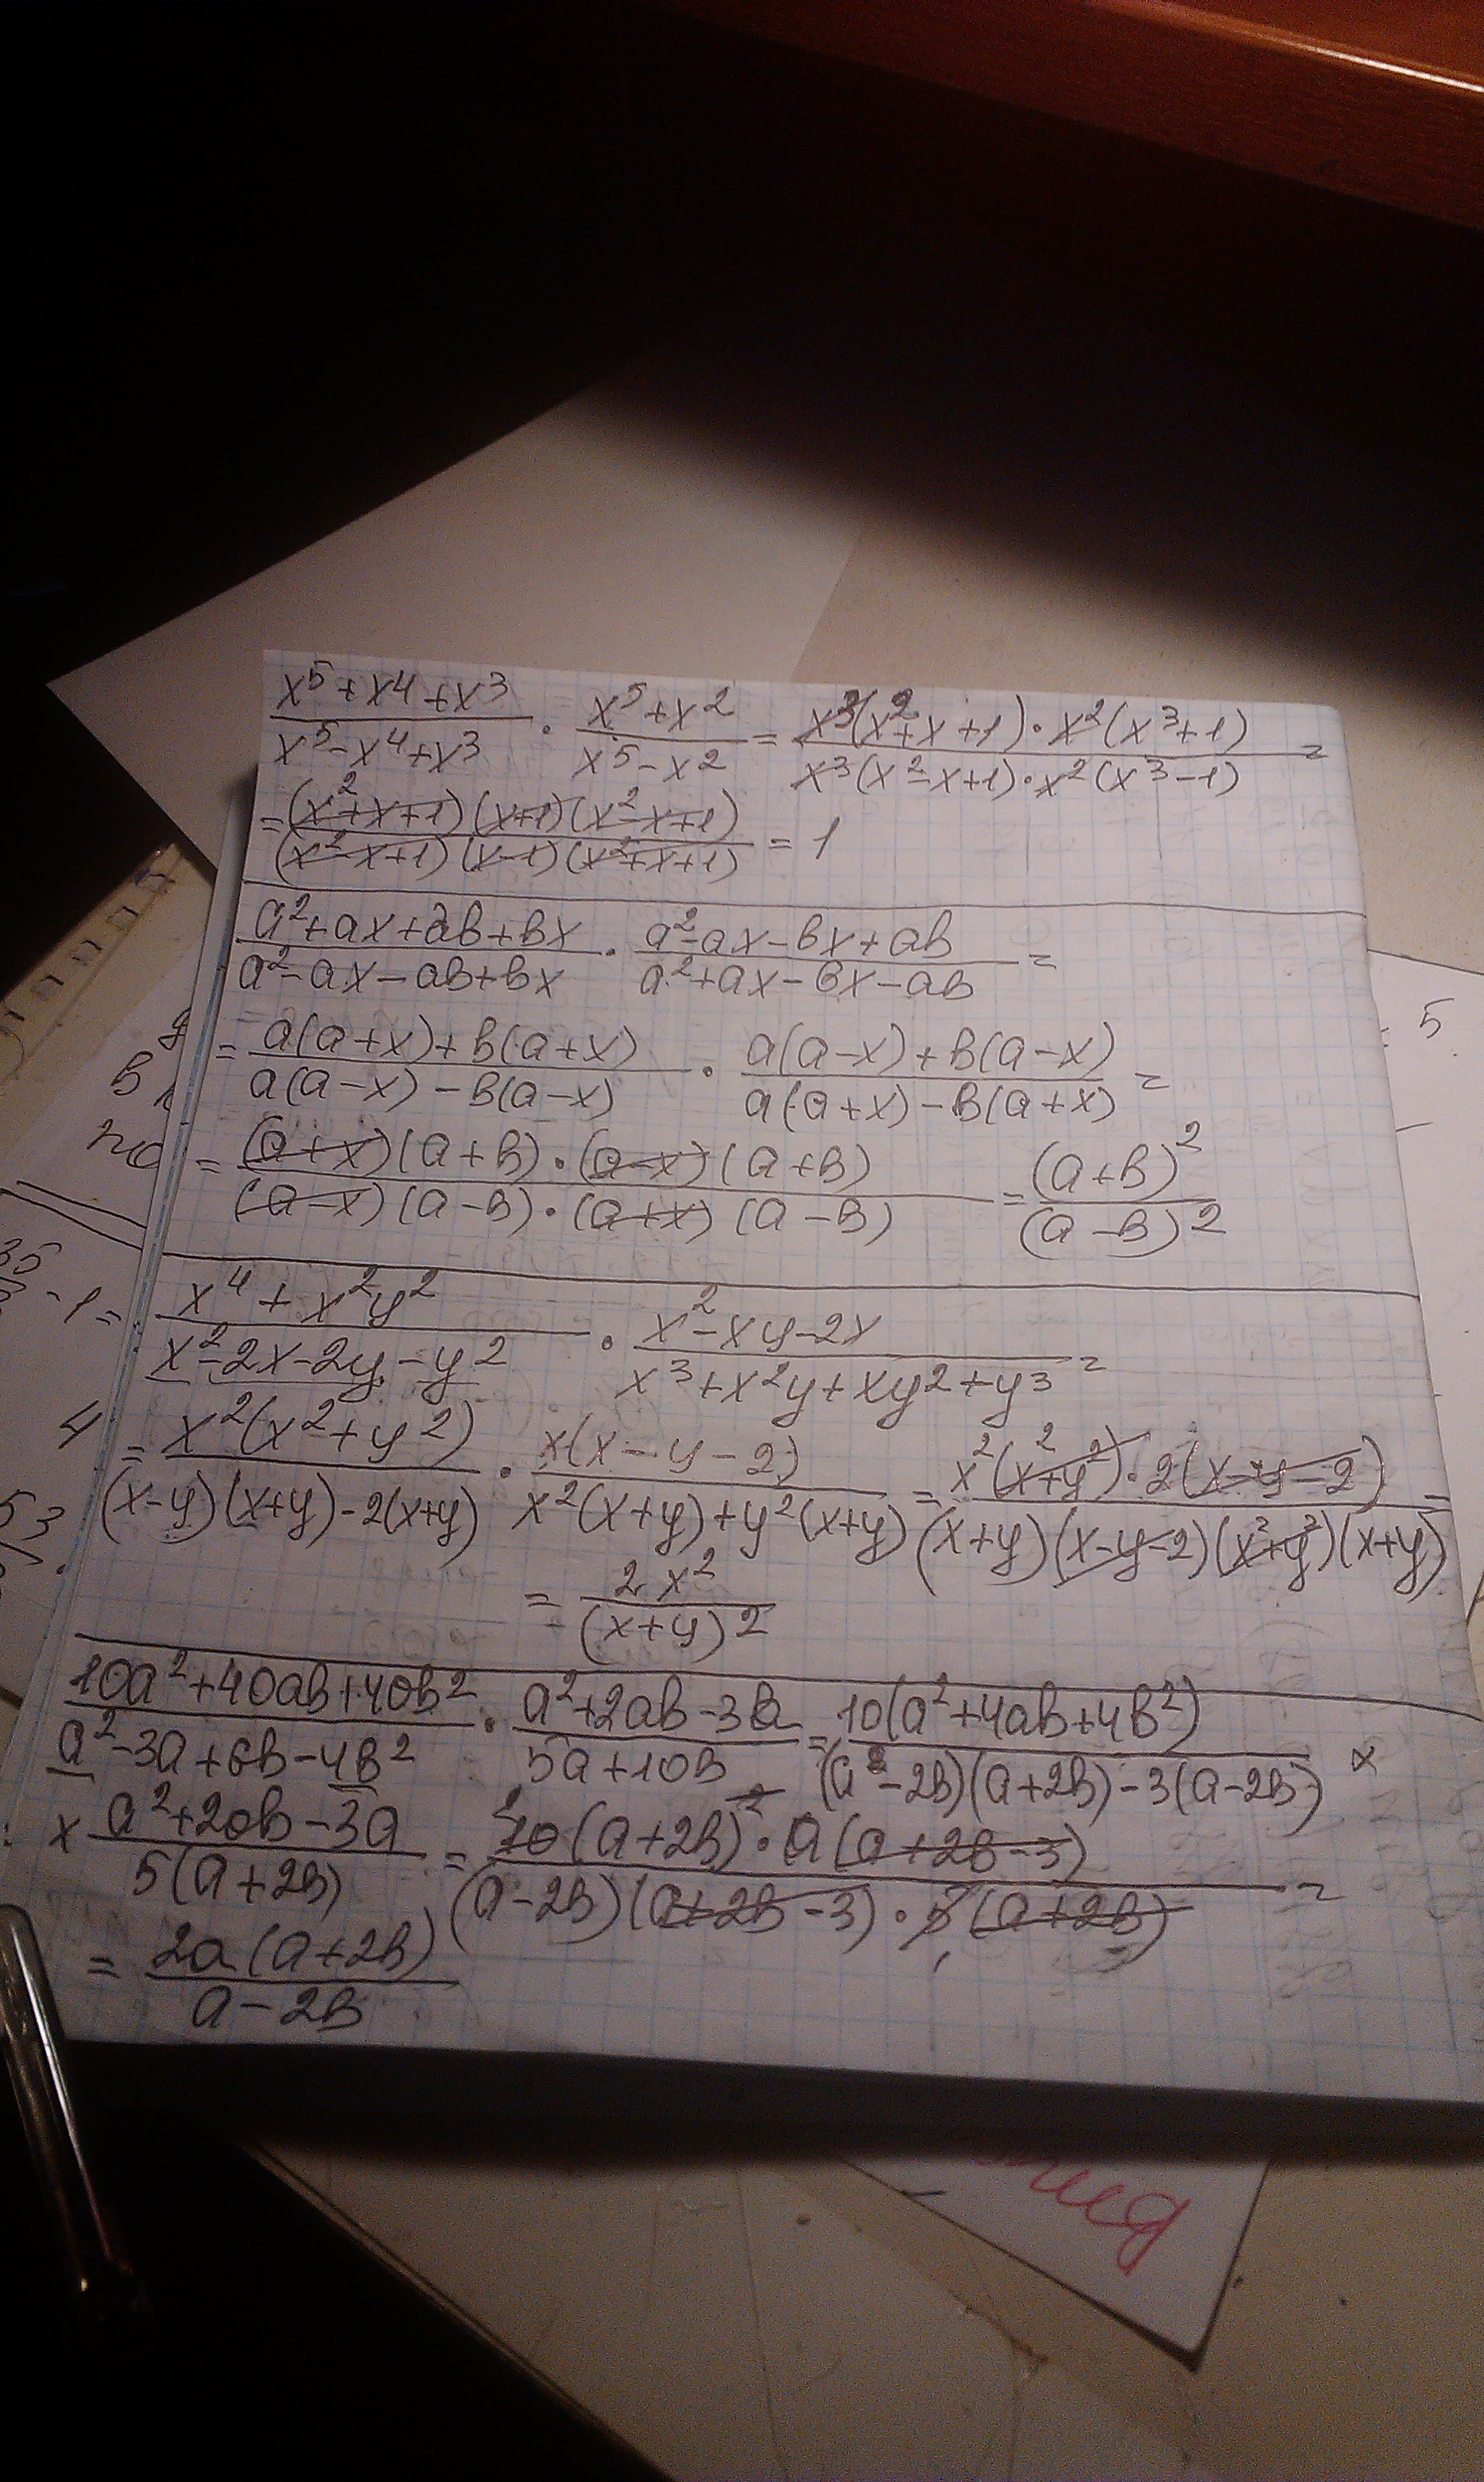 x⁵+x⁴+x³ / x⁵-x⁴+x³ · x⁵+x² / x⁵-x² = x³(x²+x+1)·x²(x³+1) / x³(x²-x+1)·x²(x³-1) =
= (x²+x+1)(x+1)(x²-x+1) / (x²-x+1)(x-1)(x²+x+1) = 1
a²+ax+ab+bx / a²-ax-ab+bx · a²-ax-bx+ab / a²+ax-bx-ab =
= a(a+x)+b(a+x) / a(a-x)-b(a-x) · a(a-x)+b(a-x) / a(a+x)-b(a+x) =
= (a+x)(a+b)·(a-x)(a+b) / (a-x)(a-b)·(a+x)(a-b) = (a+b)² / (a-b)²
x⁴+x²y² / x²-2x-2y-y² · x²-xy-2x / x³+x²y+xy²+y³ =
= x²(x²+y²) / (x-y)(x+y)-2(x+y) · x(x-y-2) / x²(x+y)+y²(x+y) = x²(x²+y²)·2(x-y-2) / (x+y)(x-y-2)(x²+y²)(x+y) =
= 2x² / (x+y)²
10a²+40ab+40b² / a²-3a+6b-4b² · a²+2ab-3a / 5a+10b = 10(a²+4ab+4b²) / (a-2b)(a+2b)-3(a-2b) ×
× a²+2ab-3a / 5(a+2b) = 10(a+2b)²·a(a+2b-3) / (a-2b)(a+2b-3)·5(a+2b) =
= 2a(a+2b) / a-2b
35
-1=
4
53
= 5